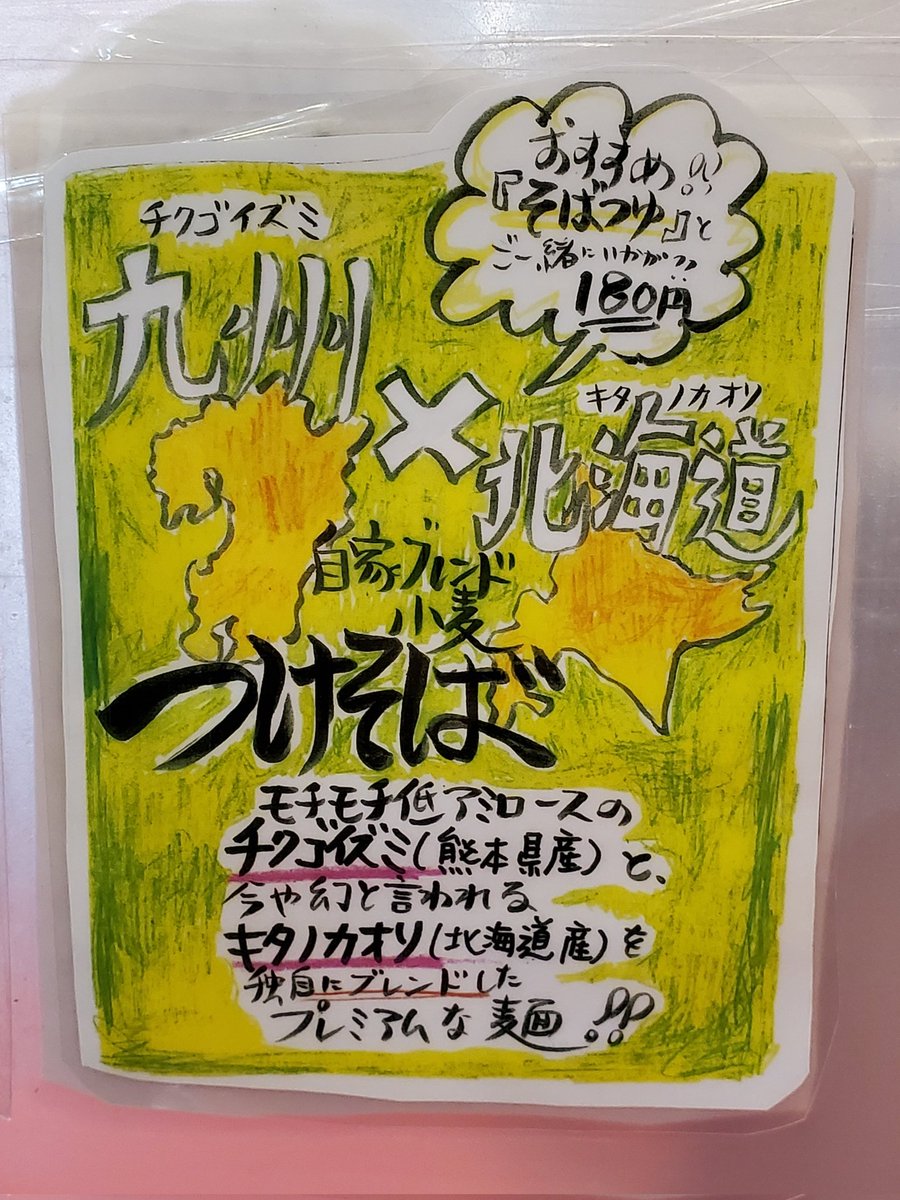 おすすめ!!
『そばつゆ』と
ご一緒にいかがっ
180円
チクゴイズミ
九州
×
キタノカオリ
北海道
自家ブレンド
小麦
つけそば
モチモチ低アミロースの
チクゴイズミ(熊本県産)と、
今や幻と言われる
キタノカオリ(北海道産)を
独自にブレンドした
プレミアムな麺!!